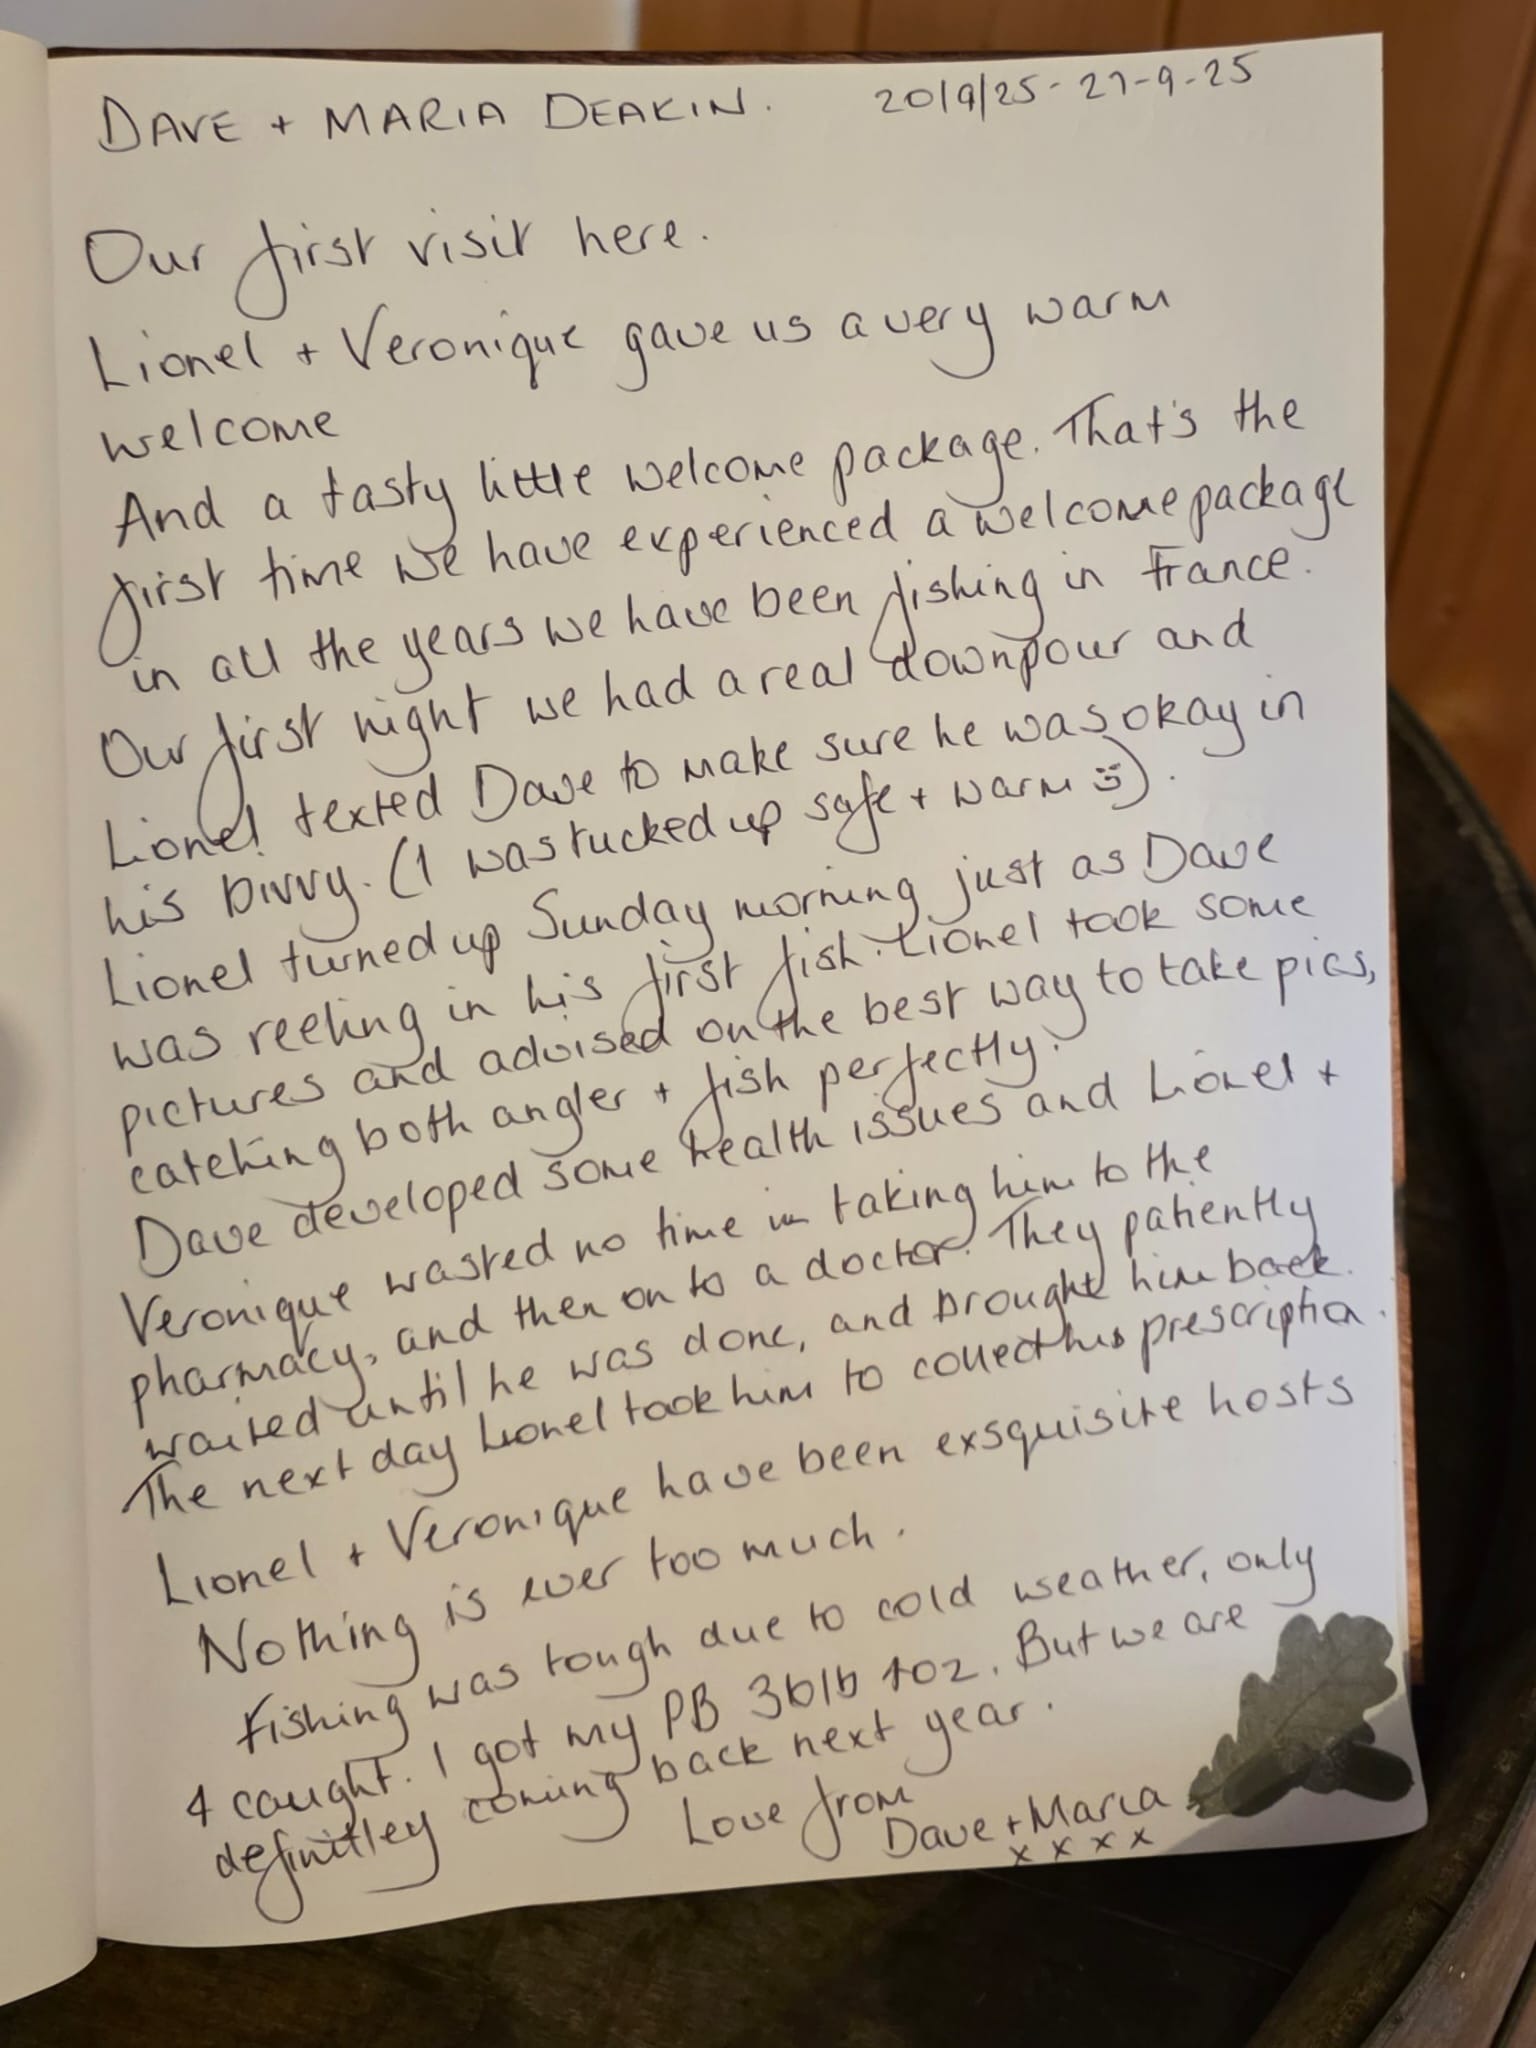 DAVE + MARIA DEAKIN. 20/9/25 - 27-9-25
Our first visit here.
Lionel + Veronique gave us a very warm
welcome
And a tasty little welcome package. That's the
first time we have experienced a welcome package
in all the years we have been fishing in France.
Our first night we had a real downpour and
Lionel texted Dave to make sure he was okay in
his bivvy. (I was tucked up safe + warm ☺).
Lionel turned up Sunday morning just as Dave
was reeling in his first fish. Lionel took some
pictures and advised on the best way to take pics,
catching both angler + fish perfectly.
Dave developed some health issues and Lionel +
Veronique wasted no time in taking him to the
pharmacy, and then on to a doctor. They patiently
waited until he was done, and brought him back.
The next day Lionel took him to collect his prescription.
Lionel + Veronique have been exsquisite hosts
Nothing is ever too much.
Fishing was tough due to cold weather, only
4 caught. I got my PB 36lb 10z. But we are
definitley coming back next year.
Love from
Dave + Maria
x x x x